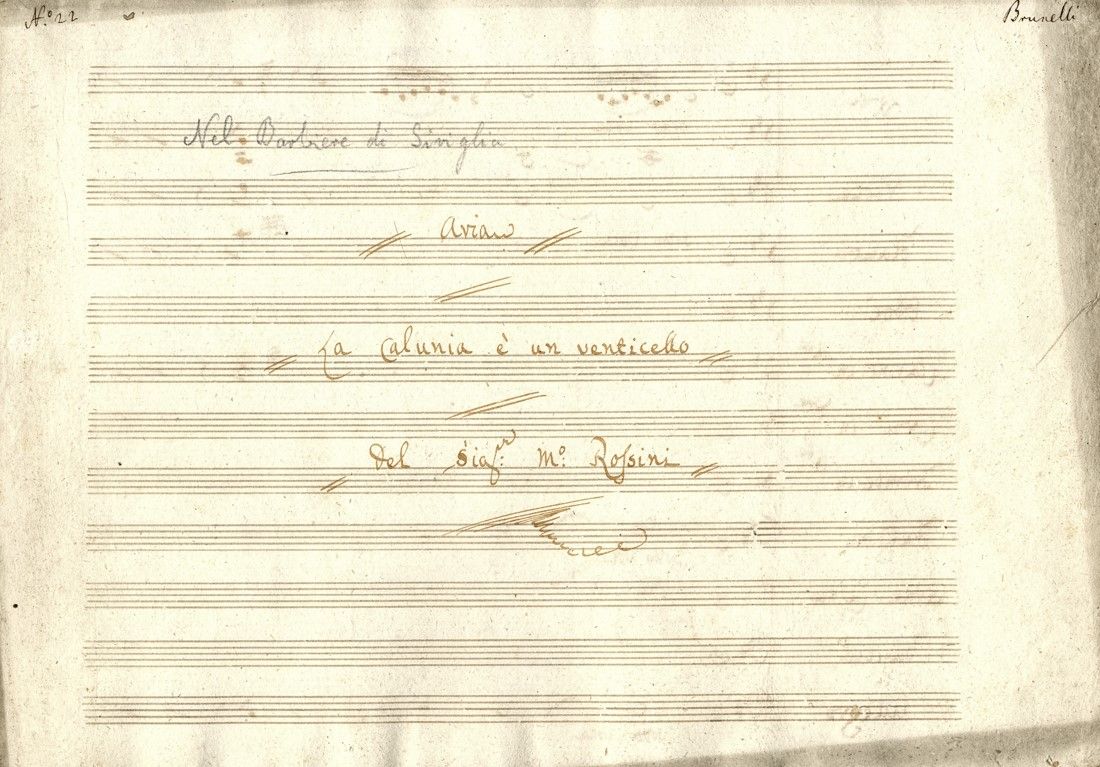 N.º 22
Brunelli
Nel Barbiere di Siviglia
Aria
La Calunia è un venticello
Del Sig.r M.º Rossini